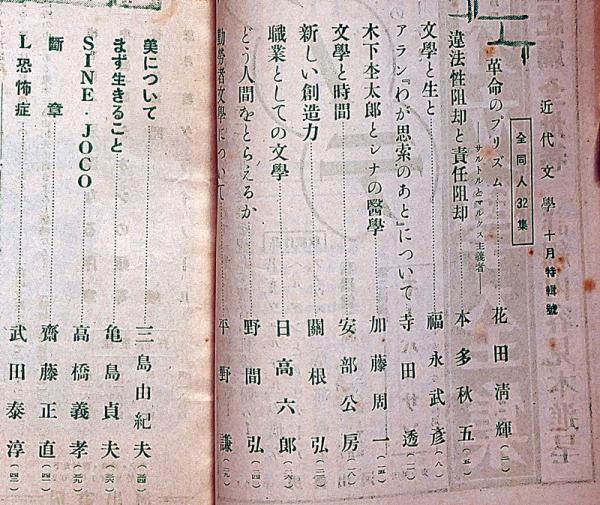 近代文學 十月特輯號
全同人32集
革命のプリズム 花田清輝 (二)
――サルトルとマルクス主義者――
違法性阻却と責任阻却 本多秋五 (五)
文學と生と 福永武彦 (八)
アラン『わが思索のあと』について 寺田透 (一一)
木下杢太郎とシナの醫學 加藤周一 (一五)
文學と時間 安部公房 (一八)
新しい創造力 關根弘
職業としての文學 日高六郎
どう人間をとらえるか 野間弘
勤勞者文學について 平野謙 (二九)
美について 三島由紀夫 (三四)
まず生きること 亀島貞夫 (三六)
SINE・JOCO 高橋義孝 (三九)
斷章 齋藤正直 (四一)
L恐怖症 武田泰淳 (四三)